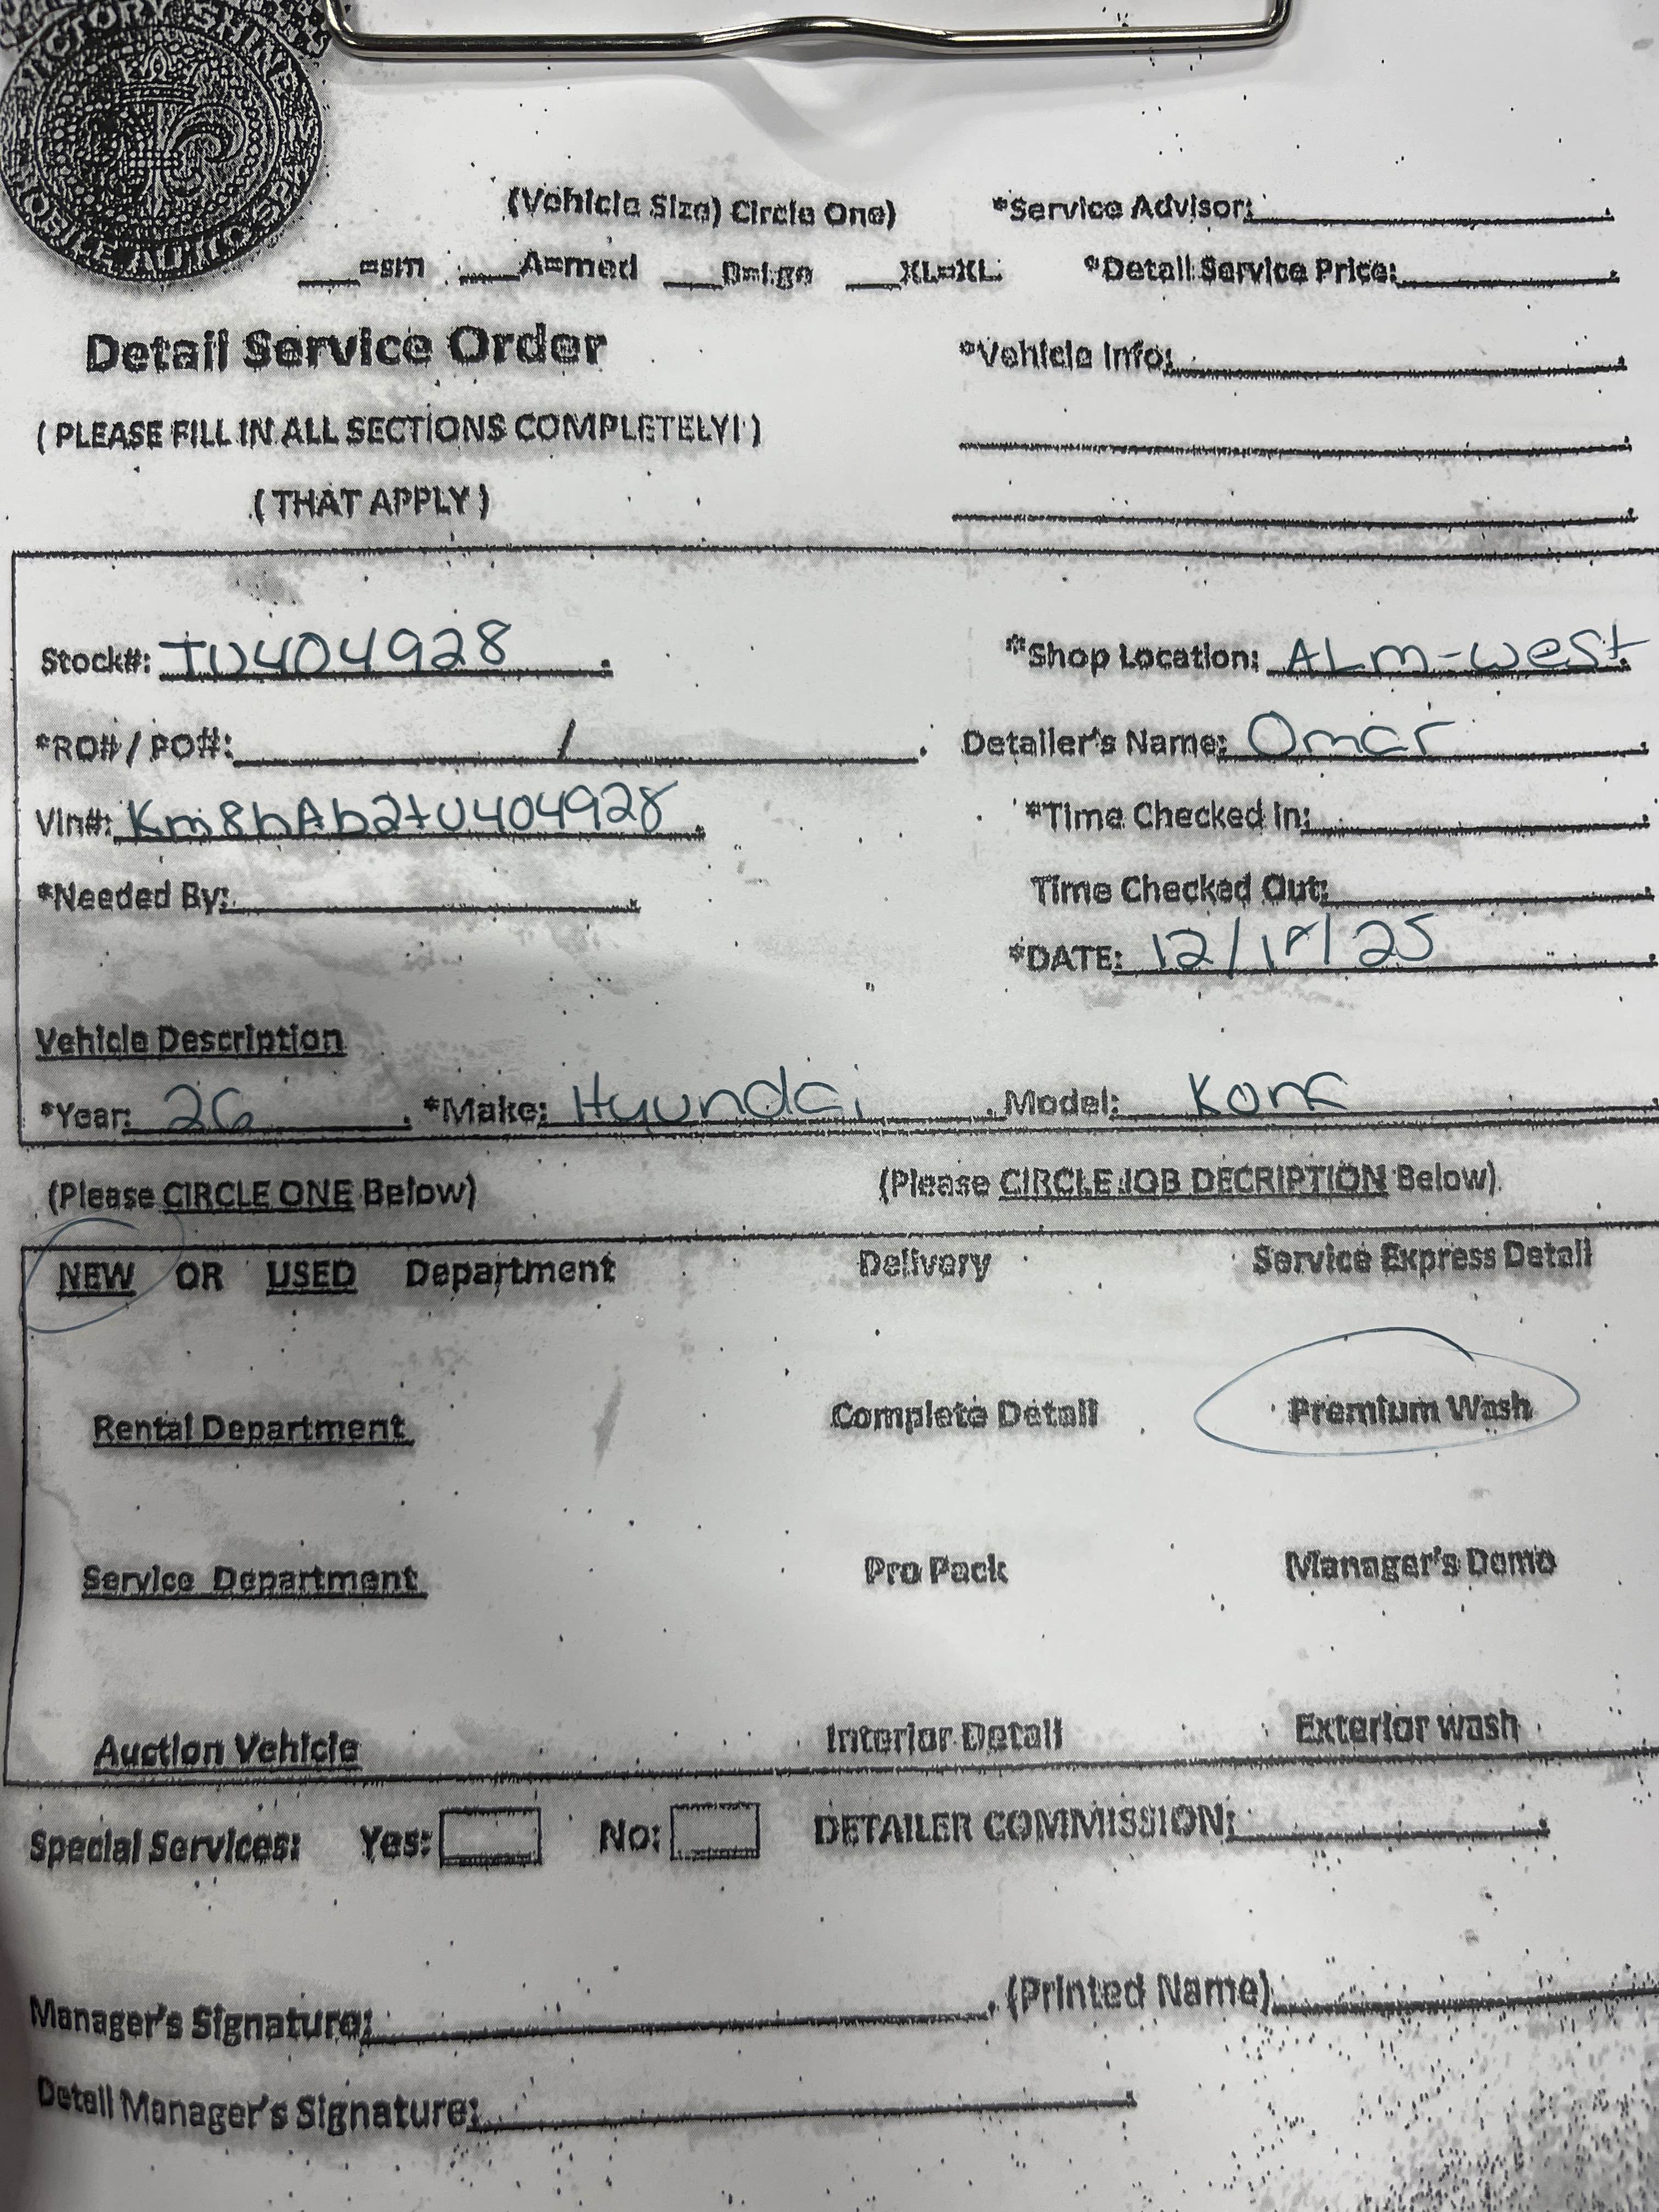 VICTORY SHINE
MOBILE AUTO SPA
(Vehicle Size) Circle One)
*Service Advisor:
=sm A=med B=Lge XL=XL
*Detail Service Price:
Detail Service Order
*Vehicle Info:
( PLEASE FILL IN ALL SECTIONS COMPLETELY! )
( THAT APPLY )
Stock#: TU404928
*Shop Location: ALM-West
*RO# / PO#: /
Detailer's Name: Omar
Vin#: Km8hAb2tU404928
*Time Checked In:
*Needed By:
Time Checked Out:
*DATE: 12/ /25
Vehicle Description
*Year: 26 *Make: Hyundai Model: Kona
(Please CIRCLE ONE Below)
(Please CIRCLE JOB DECRIPTION Below)
NEW OR USED Department
Delivery
Service Express Detail
Rental Department
Complete Detail
Premium Wash
Service Department
Pro Pack
Manager's Demo
Auction Vehicle
Interior Detail
Exterior wash
Special Services: Yes: No: DETAILER COMMISSION:
Manager's Signature: (Printed Name)
Detail Manager's Signature: